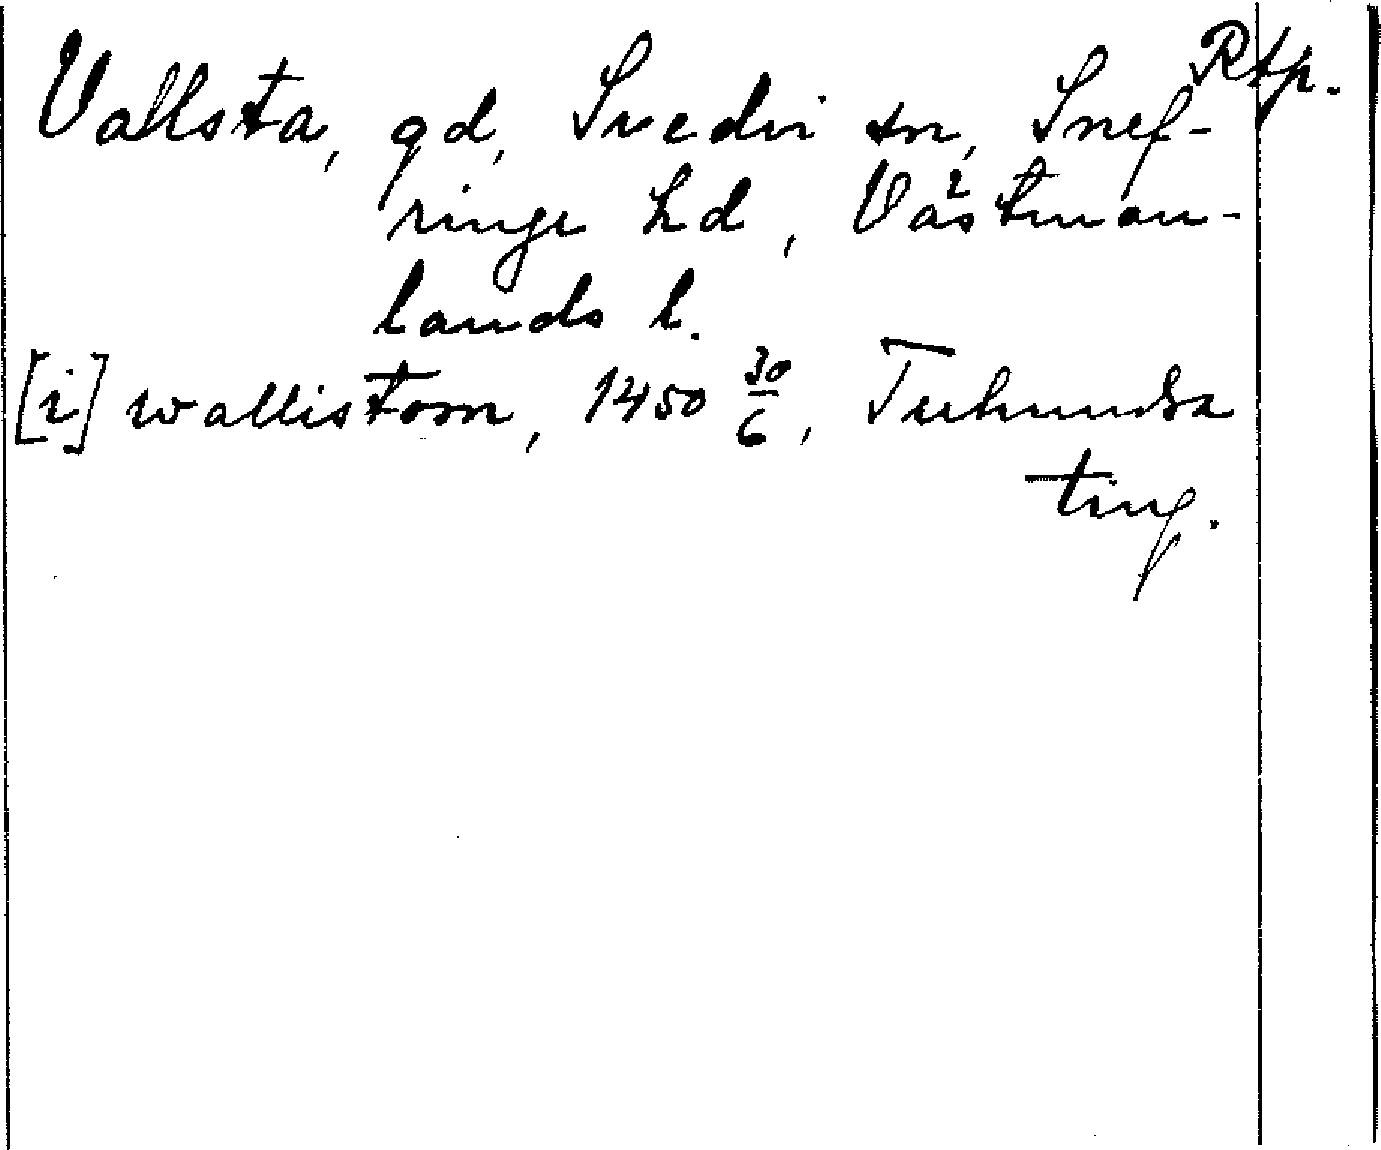 Rtp.
Vallsta, gd, Svedvi sn, Snef-
ringe hd, Västman-
lands l.
[i] wallistom, 1450 30/6, Tuhundra
ting.